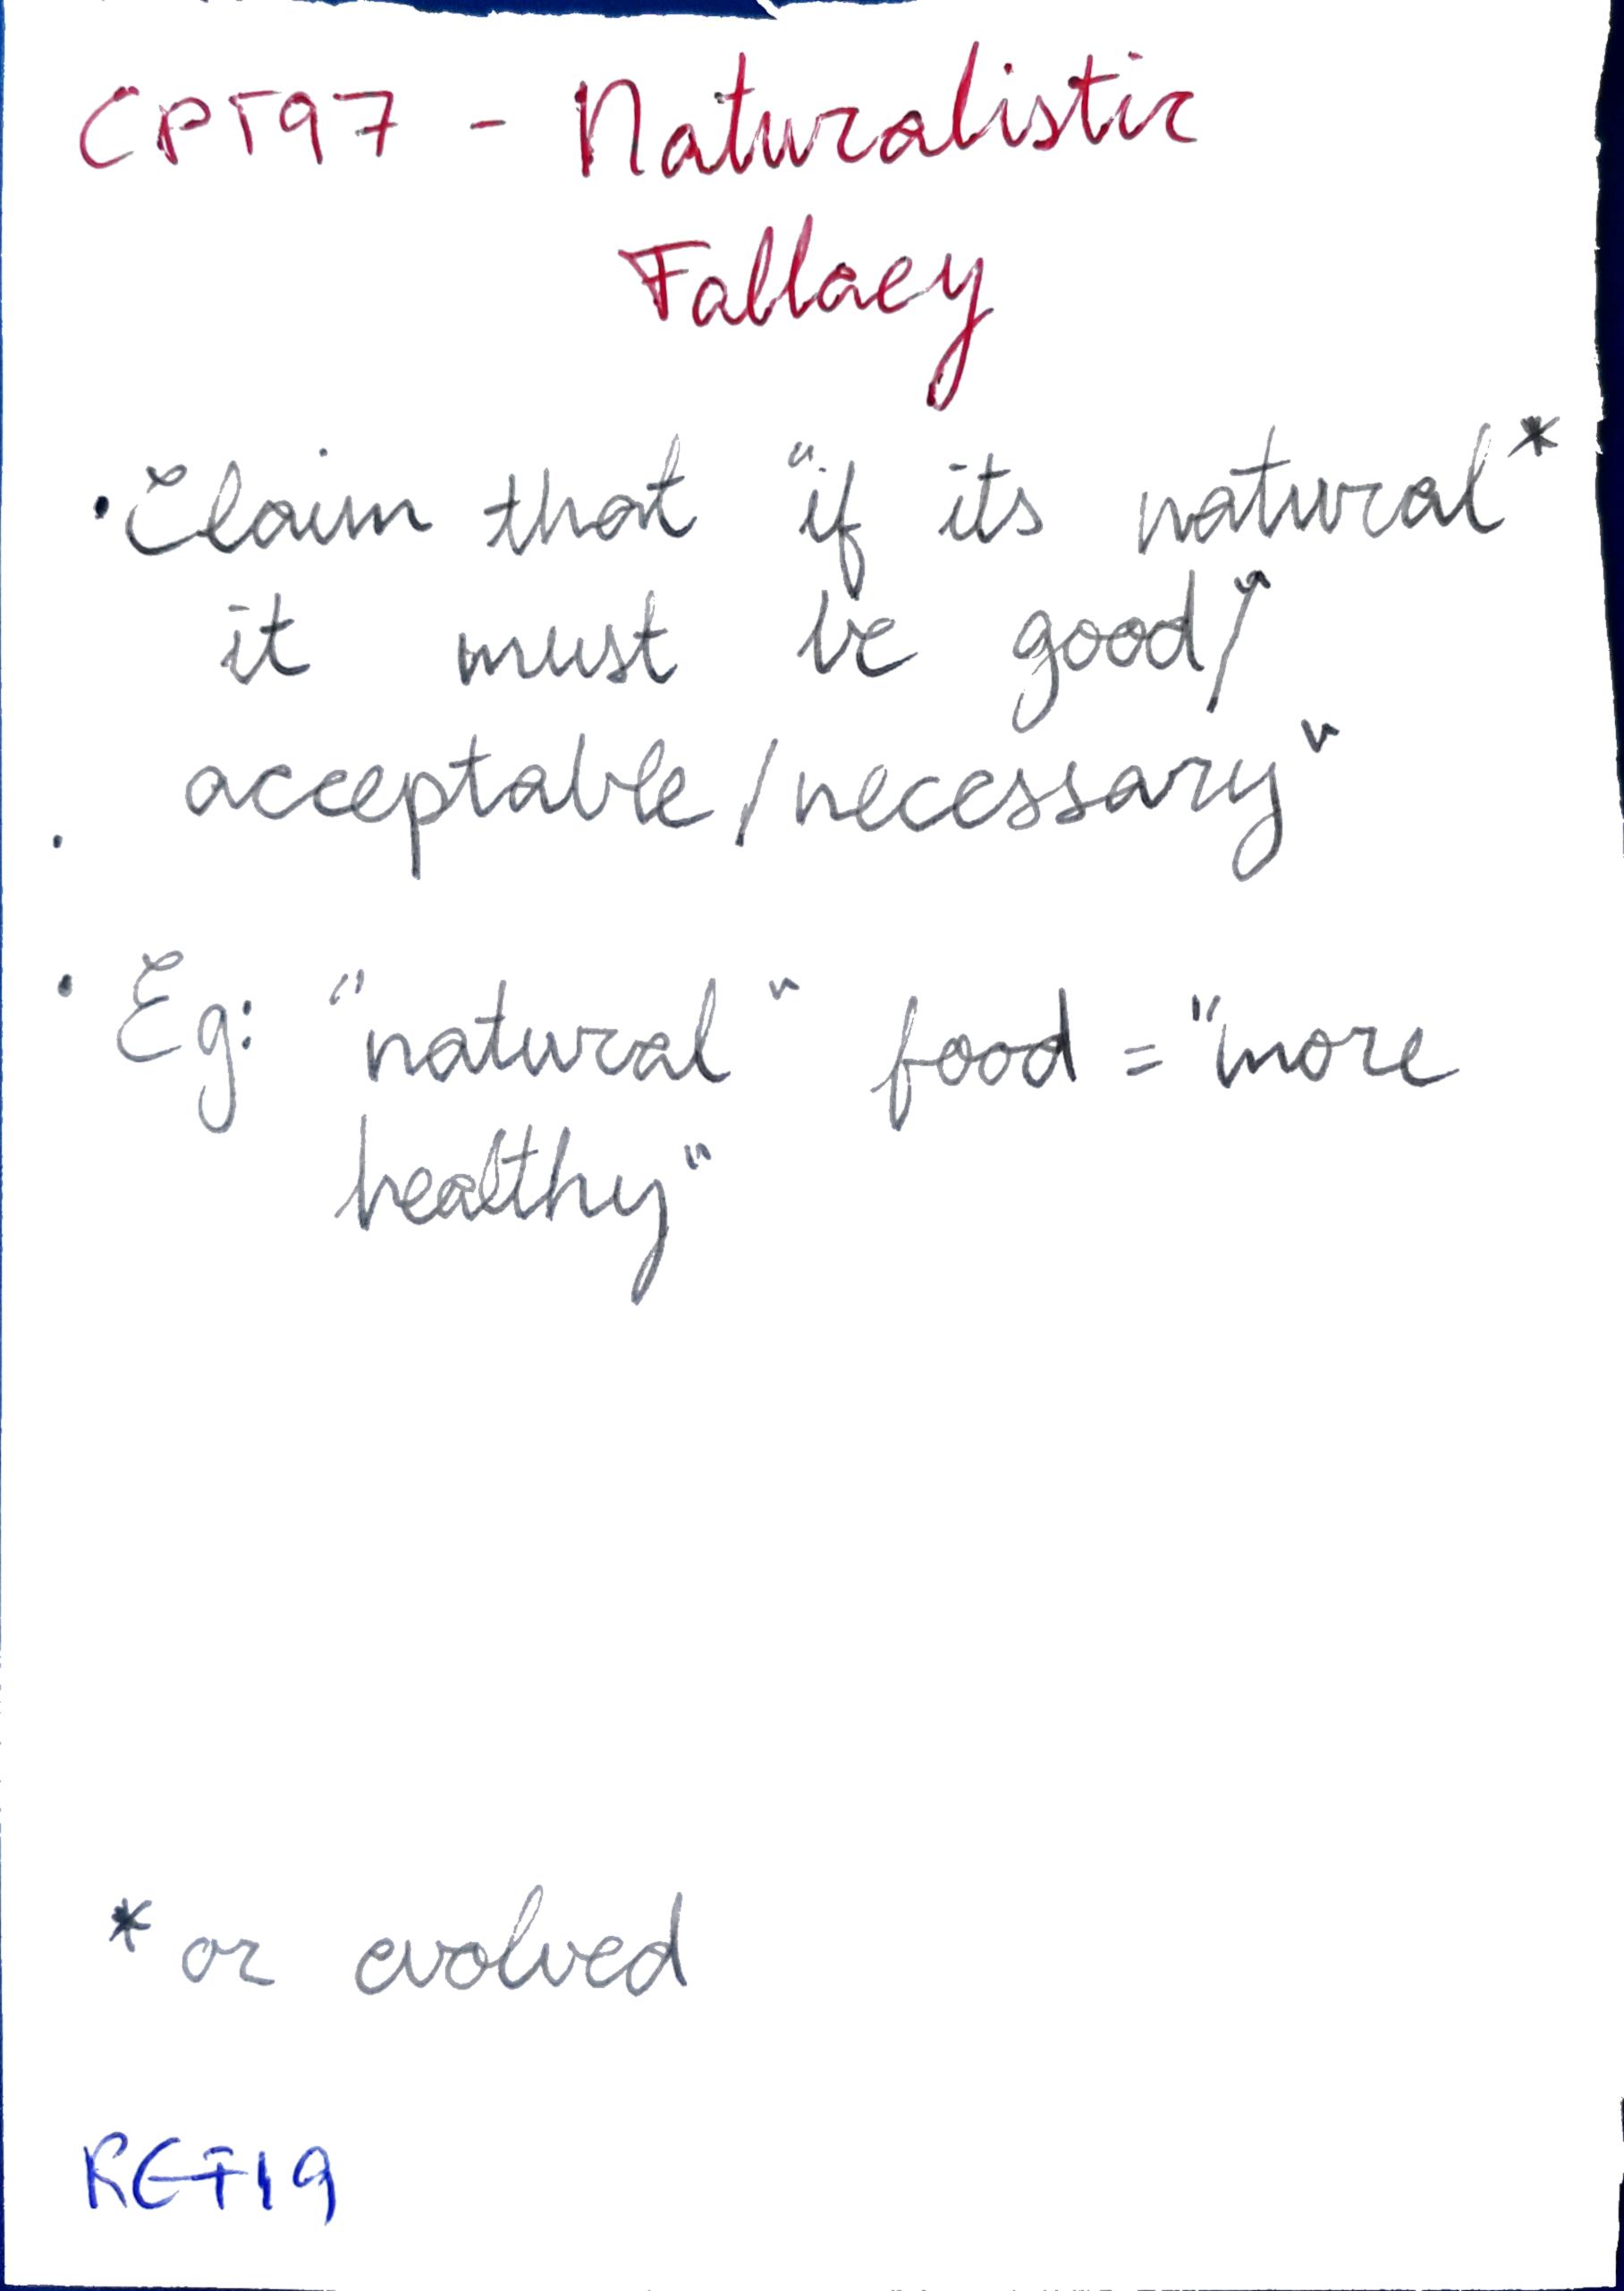 CPT97 - Naturalistic
Fallacy
• Claim that "if its natural*
it must be good/
acceptable/necessary"
• Eg: "natural" food = "more
healthy"
* or evolved
REF19